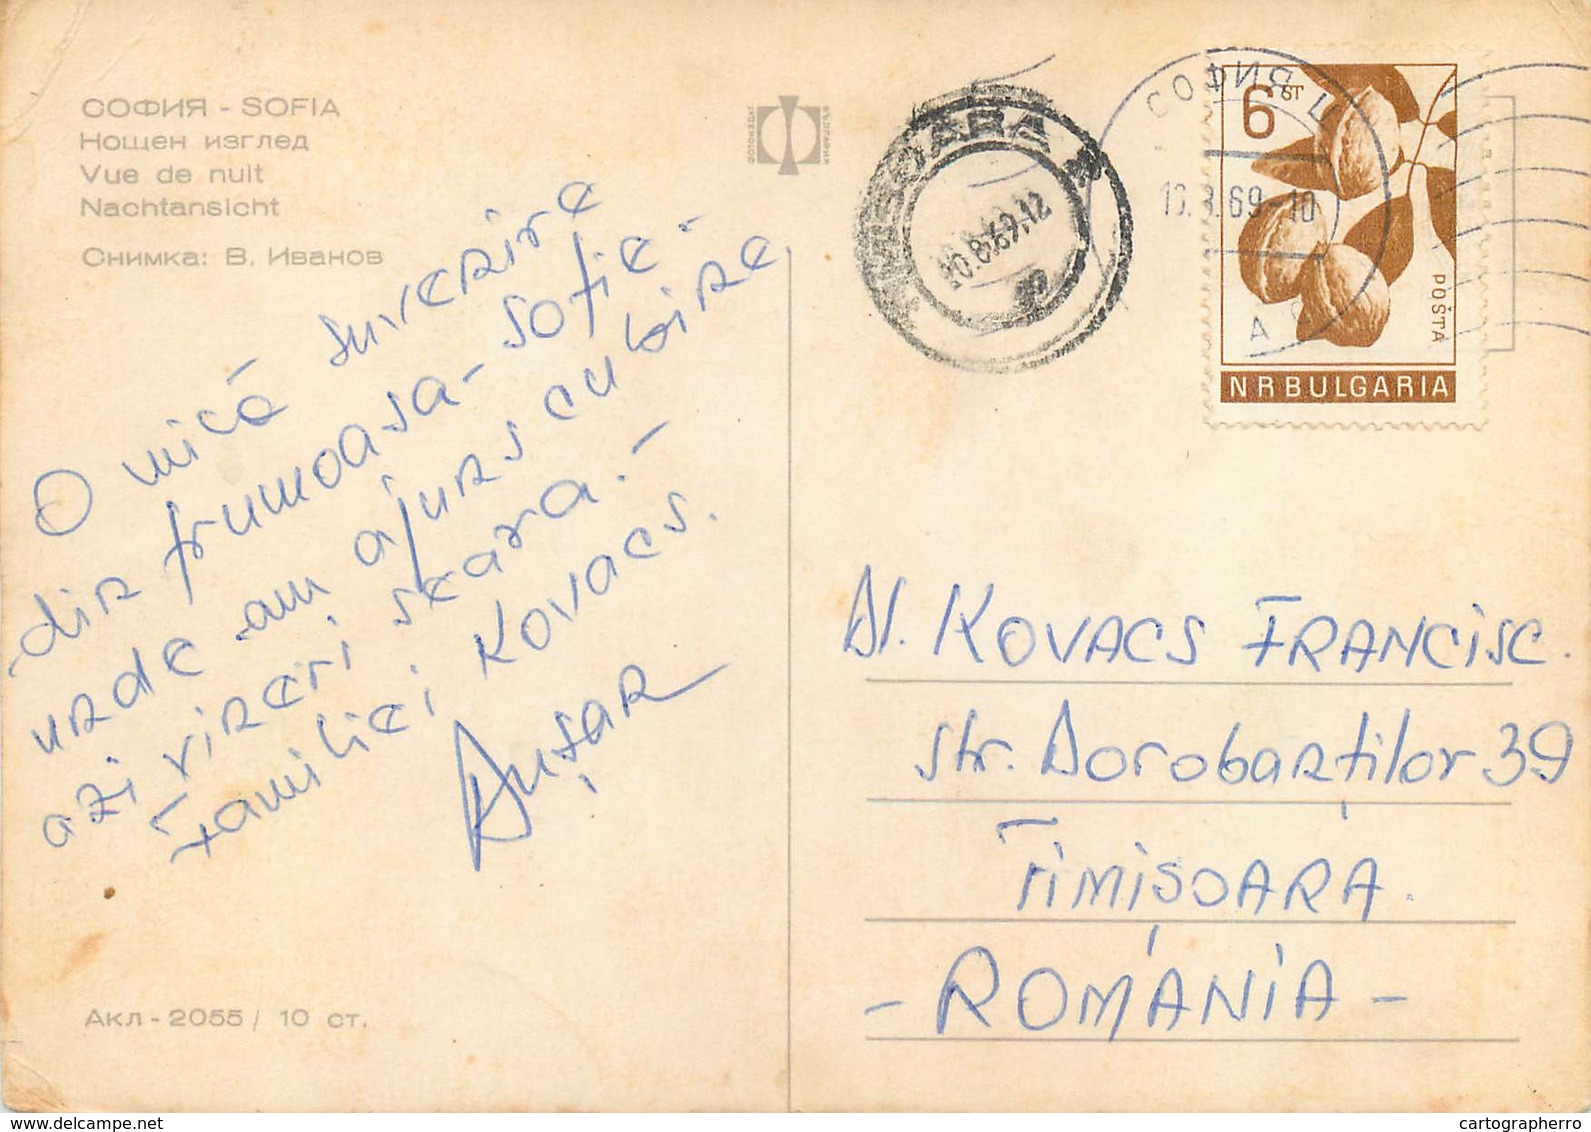 СОФИЯ - SOFIA
Нощен изглед
Vue de nuit
Nachtansicht
Снимка: В. Иванов
O mică suvenire
din frumoasa - sofie -
unde am ajuns cu bine,
azi vineri seara. -
Familiei Kovacs.
Акл - 2055 / 10 ст.
ФОТОИЗДАТ
TIMISOARA
.8.69.12
СОФИЯ
.8.69-10
6 ST
POŠTA
NRBULGARIA
Dl. KOVACS FRANCISC.
str. Dorobanților 39
TIMIȘOARA.
- ROMÂNIA -
delcampe.net
cartographerro